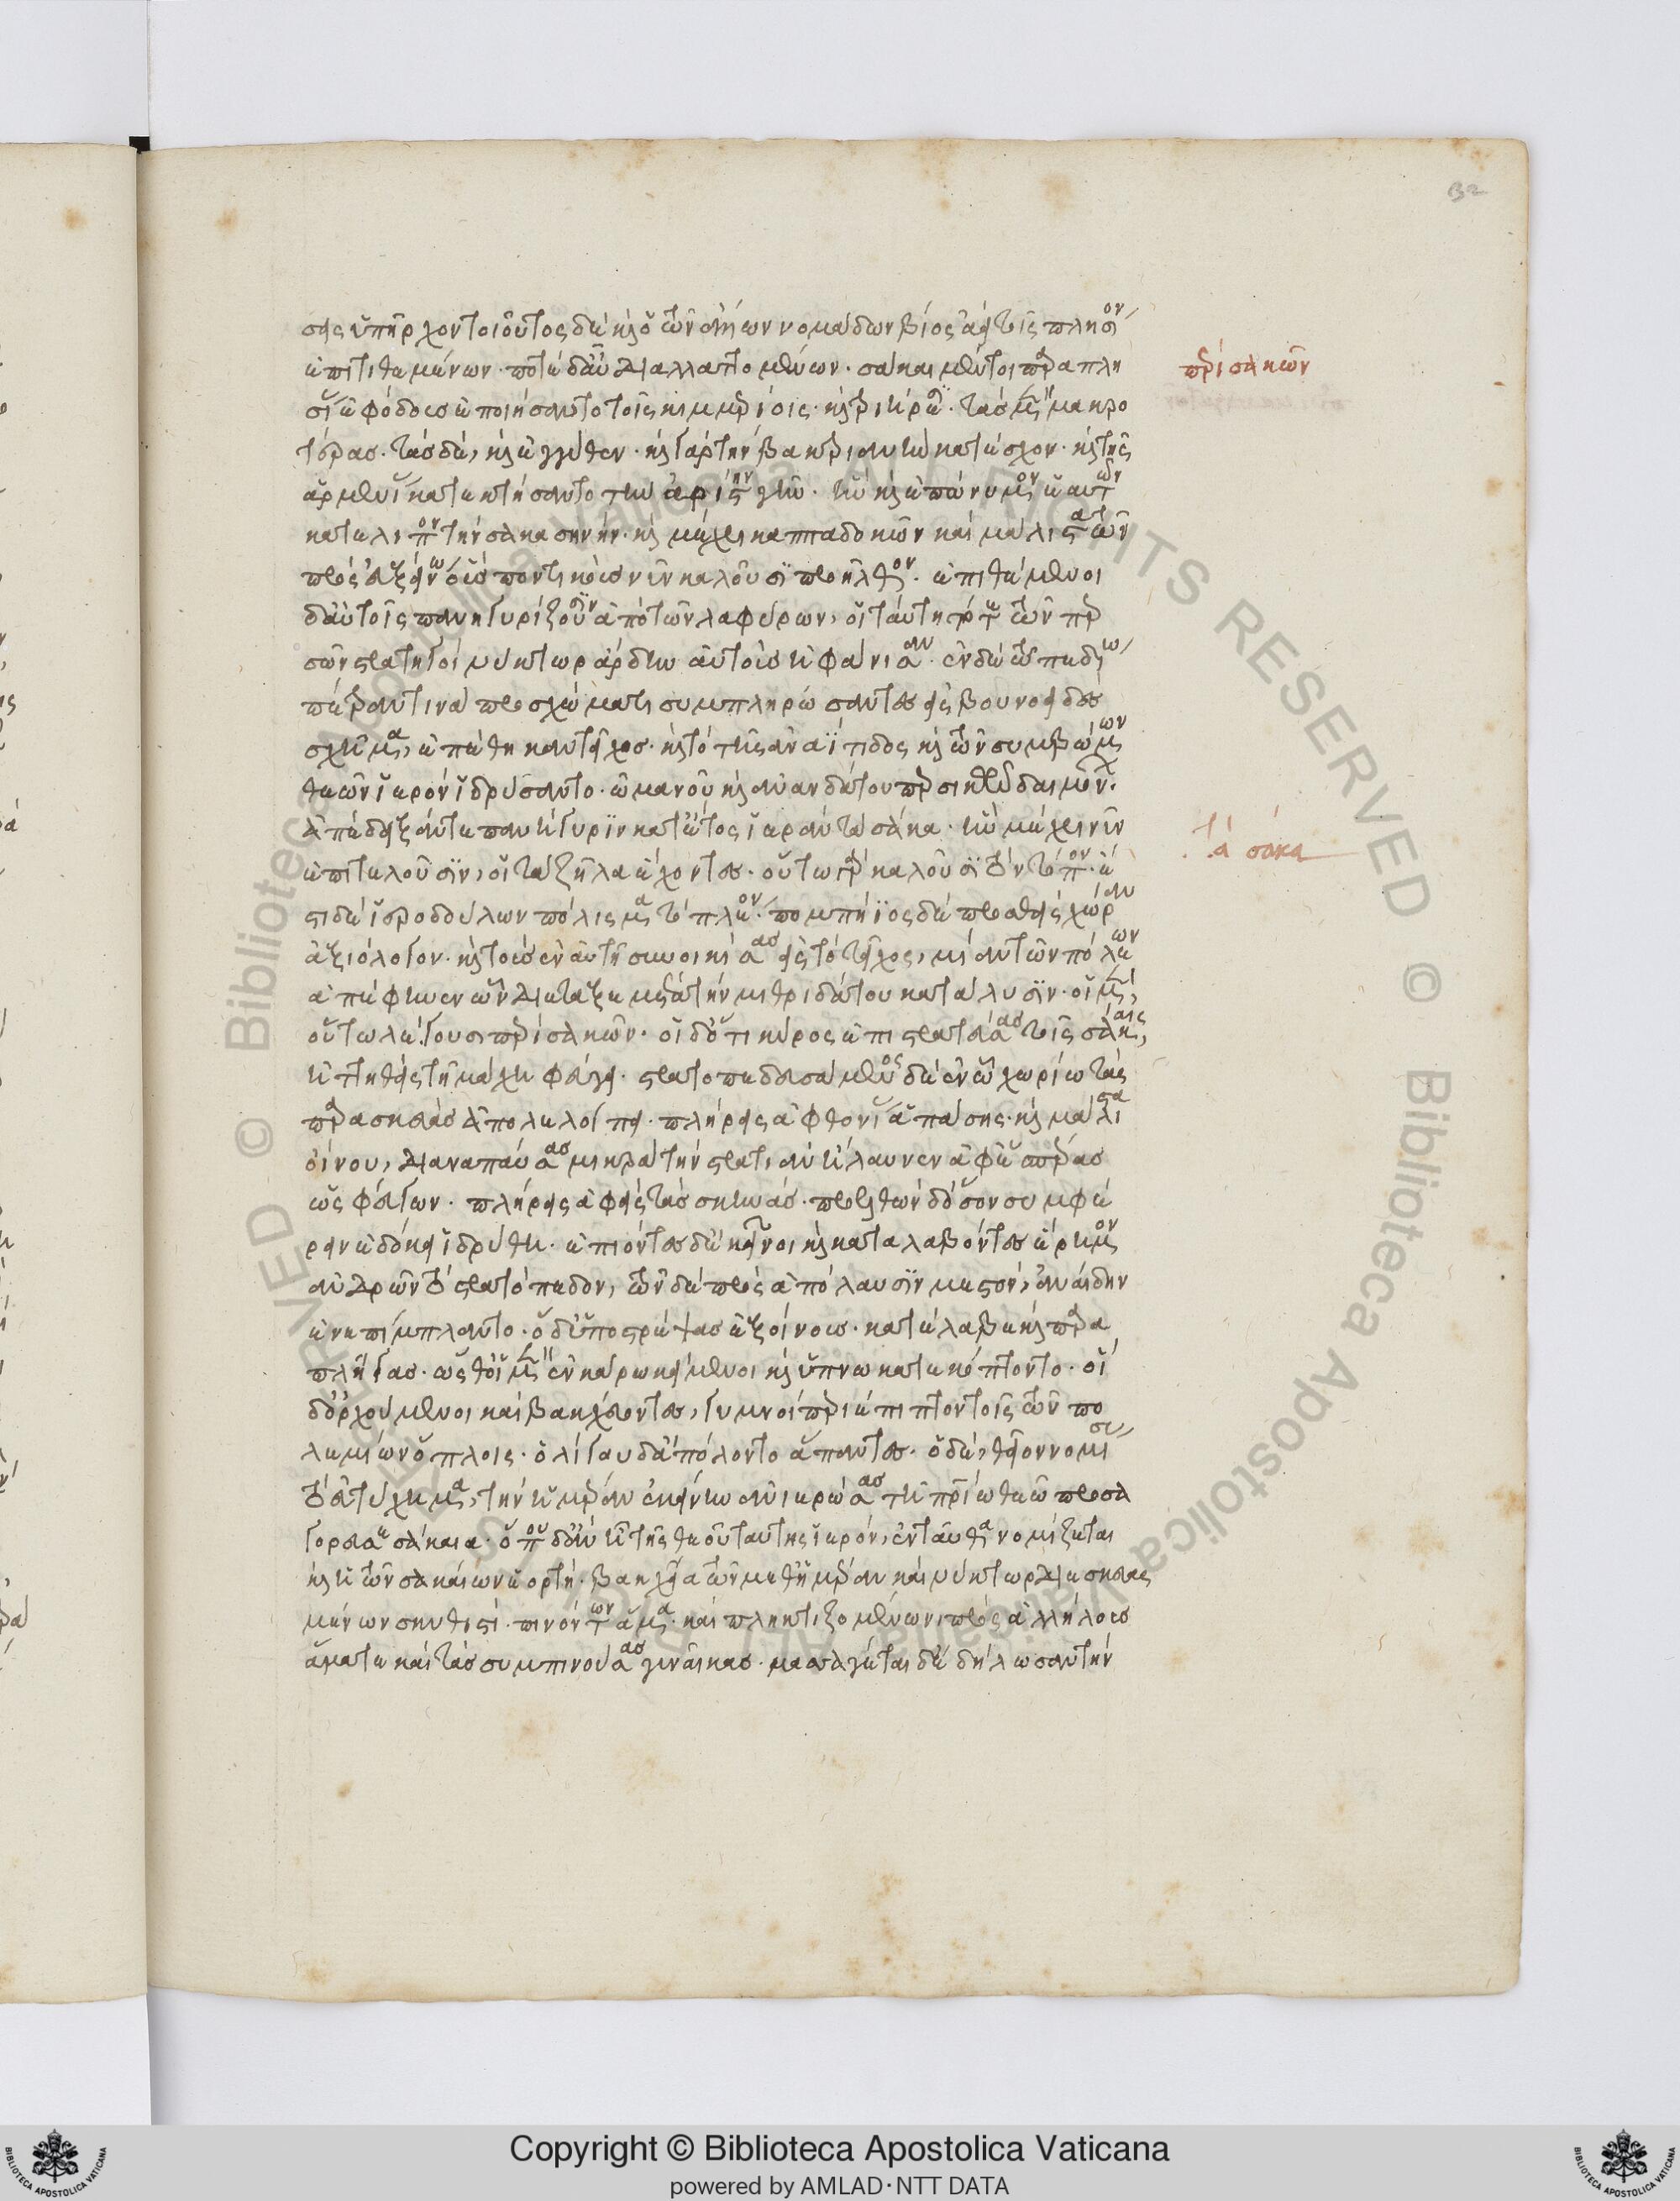 σεις ὑπῆρχον τοιοῦτος δὲ καὶ ὁ τῶν ἄλλων νομάδων βίος ἀεὶ τοῖς πλησίον
ἐπιτιθεμένων· ποτὲ δ' αὖ διαλλαττομένων· σάκαι μέντοι παραπλη
σί ἐφόδους ἐποιήσαντο τοῖς κιμμερίοις· καὶ τριήρε· τὰς μὲν μακρο
τέρας· τὰς δὲ, καὶ ἐγγύθεν· καὶ γὰρ τὴν βακτριανὴν κατέσχον· καὶ τῆς
ἀρμενί κατεκτήσαντο τὴν ἀρίστην γῆν· ἣν καὶ ἐπώνυμον ἑαυτῶν
κατέλιπον τὴν σακασηνήν· καὶ μέχρι καππαδοκῶν καὶ μάλιστα τῶν
πρὸς εὐξείνω οὓς ποντικοὺς νῦν καλοῦσϊ προῆλθον· ἐπιθέμενοι
δ' αὐτοῖς πανηγυρίζουσϊν ἀπὸ τῶν λαφύρων, οἱ ταύτη τότε τῶν περ
σῶν στρατηγοὶ νύκτωρ ἄρδην αὐτοὺς ἠφάνισαν· ἐν δὲ τῶ πεδίω
πέτραν τινὰ προσχώματι συμπληρώσαντες εἰς βουνοειδὲς
σχῆμα, ἐπέθηκαν τεῖχος· καὶ τὸ τῆς ἀναΐτιδος καὶ τῶν συμβώμων
θεῶν ἱερὸν ἱδρύσαντο· ὠμανοῦ καὶ ἀνανδάτου περσικῶν δαιμόν·
ἀπέδειξάν τε πανήγυρϊν κατ' ἔτος ἱερὰν τὰ σάκα· ἣν μέχρι νῦν
ἐπιτελοῦσϊν, οἱ τὰ ζῆλα ἔχοντες· οὕτω γὰρ καλοῦσϊ τὸν τόπον· ἔ
στι δὲ ἱεροδούλων πόλισμα τὸ πλέον· πομπήϊος δὲ προσθεὶς χώραν
ἀξιόλογον· καὶ τοὺς ἐν αὐτῆ συνοικίσας εἰς τὸ τεῖχος, μίαν τῶν πόλεων
ἀπέφηνεν ὧν διέταξε μετὰ τὴν μιθριδάτου κατάλυσϊν· οἱ μὲν,
οὕτω λέγουσι περὶ σακῶν· οἱ δ' ὅτι κῦρος ἐπιστρατεύσας τοῖς σάκαις,
ἡττηθεὶς τῆ μάχη φεύγει· στρατοπεδευσάμενος δὲ ἐν ὧ χωρίω τὰς
παρασκευὰς ἀπολελοίπει· πλήρεις ἀφθονί ἁπάσης· καὶ μάλιστα
οἴνου, διαναπαύσας μικρὰ τὴν στρατιὰν ἤλαυνεν ἀφ' ἑσπέρας
ὡς φεύγων· πλήρεις ἀφεὶς τὰς σκηνάς· προελθὼν δ' ὅσον συμφέ
ρειν ἐδόκει ἱδρύθη· ἐπιόντες δ' ἐκεῖνοι καὶ καταλαβόντες ἔρημον
ἀνδρῶν τὸ στρατόπεδον, τῶν δὲ πρὸς ἀπόλαυσϊν μεστόν, ἀναίδην
ἐνεπίμπλαντο· ὁ δ' ὑποστρέψας ἐξοίνους· κατέλαβε καὶ παρα
πλῆγας· ὥσθ' οἱ μὲν ἐν κάρω κείμενοι καὶ ὕπνω κατεκόπτοντο· οἱ
δ' ὀρχούμενοι καὶ βακχεύοντες, γυμνοὶ περιέπιπτον τοῖς τῶν πο
λεμίων ὅπλοις· ὀλίγου δ' ἀπόλοντο ἅπαντες· ὁ δὲ, θεῖον νομίσας
τὸ εὐτύχημα, τὴν ἡμέραν ἐκείνην ἀνιερώσας τῆ πατρίω θεῶ προσα
γορεύσε σάκαια· ὅπου δ' ἂν ἦ τῆς θεοῦ ταύτης ἱερόν, ἐνταῦθα νομίζεται
καὶ ἡ τῶν σακαίων ἑορτή· βακχεία τῶν μεθ' ἡμέραν καὶ νύκτωρ διεσκευας
μένων σκυθιστί· πινόντων ἅμα· καὶ πληκτιζομένων πρὸς ἀλλήλους
ἅμα τε καὶ τὰς συμπινούσας γυναῖκας· μασσαγέται δ' ἐδήλωσαν τὴν
περὶ σακῶν
τὰ σάκα